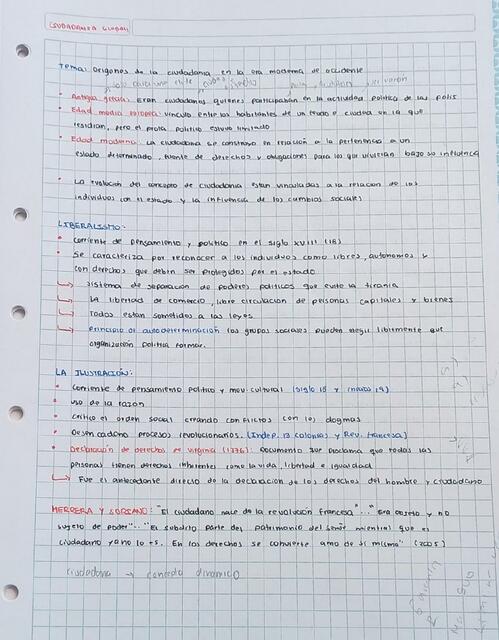 CIUDADANIA GLOBAL
Tema: Origenes de la ciudadania en la era moderna de occidente
• Antigua grecia: Eran ciudadanos quienes participaban en la actividad politica de las polis
• Edad media europea: vinculo entre los habitantes de un feudo o ciudad en la que
residian, pero el prota politico estuvo limitado
• Edad moderna: La ciudadania se construyo en relación a la pertenencia a un
estado determinado, fuente de derechos y obligaciones para los que vivieran bajo su influencia
• La evolución del concepto de ciudadania estan vinculadas a la relacion de los
individuos con el estado y la influencia de los cambios sociales
LIBERALISMO:
• corriente de pensamiento y politico en el siglo XVIII (18)
• Se caracteriza por reconocer a los individuos como libres, autonomos y
con derechos que debin ser protegidos por el estado
↳ sistema de separacion de poderes politicos que evite la tirania
↳ La libertad de comercio, libre circulacion de personas capitales y bienes
↳ Todos estan sometidos a las leyes.
↳ Principio de autodeterminación los grupos sociales pueden elegir libremente que
organización politica formar.
LA ILUSTRACIÓN:
• corriente de pensamiento politico y mov. cultural (siglo 18 y inicios 19)
• uso de la razon
• critico el orden social creando conflictos con los dogmas
• Desencadeno procesos revolucionarios. (Indep. 13 colonias y Rev. Francesa)
• Declaración de derechos de Virginia (1776): Documento que proclama que todas las
personas tienen derechos inherentes como la vida, libertad e igualdad
↳ Fue el antecedente directo de la declaracion de los derechos del hombre y ciudadano
HERRERA Y SORIANO: "El ciudadano nace de la revolución francesa"... "Era objeto y no
sujeto de poder"... "El subdito parte del patrimonio del señor mientras que el
ciudadano ya no lo es. En los derechos se convierte amo de si mismo" (2005)
ciudadania → concepto dinamico